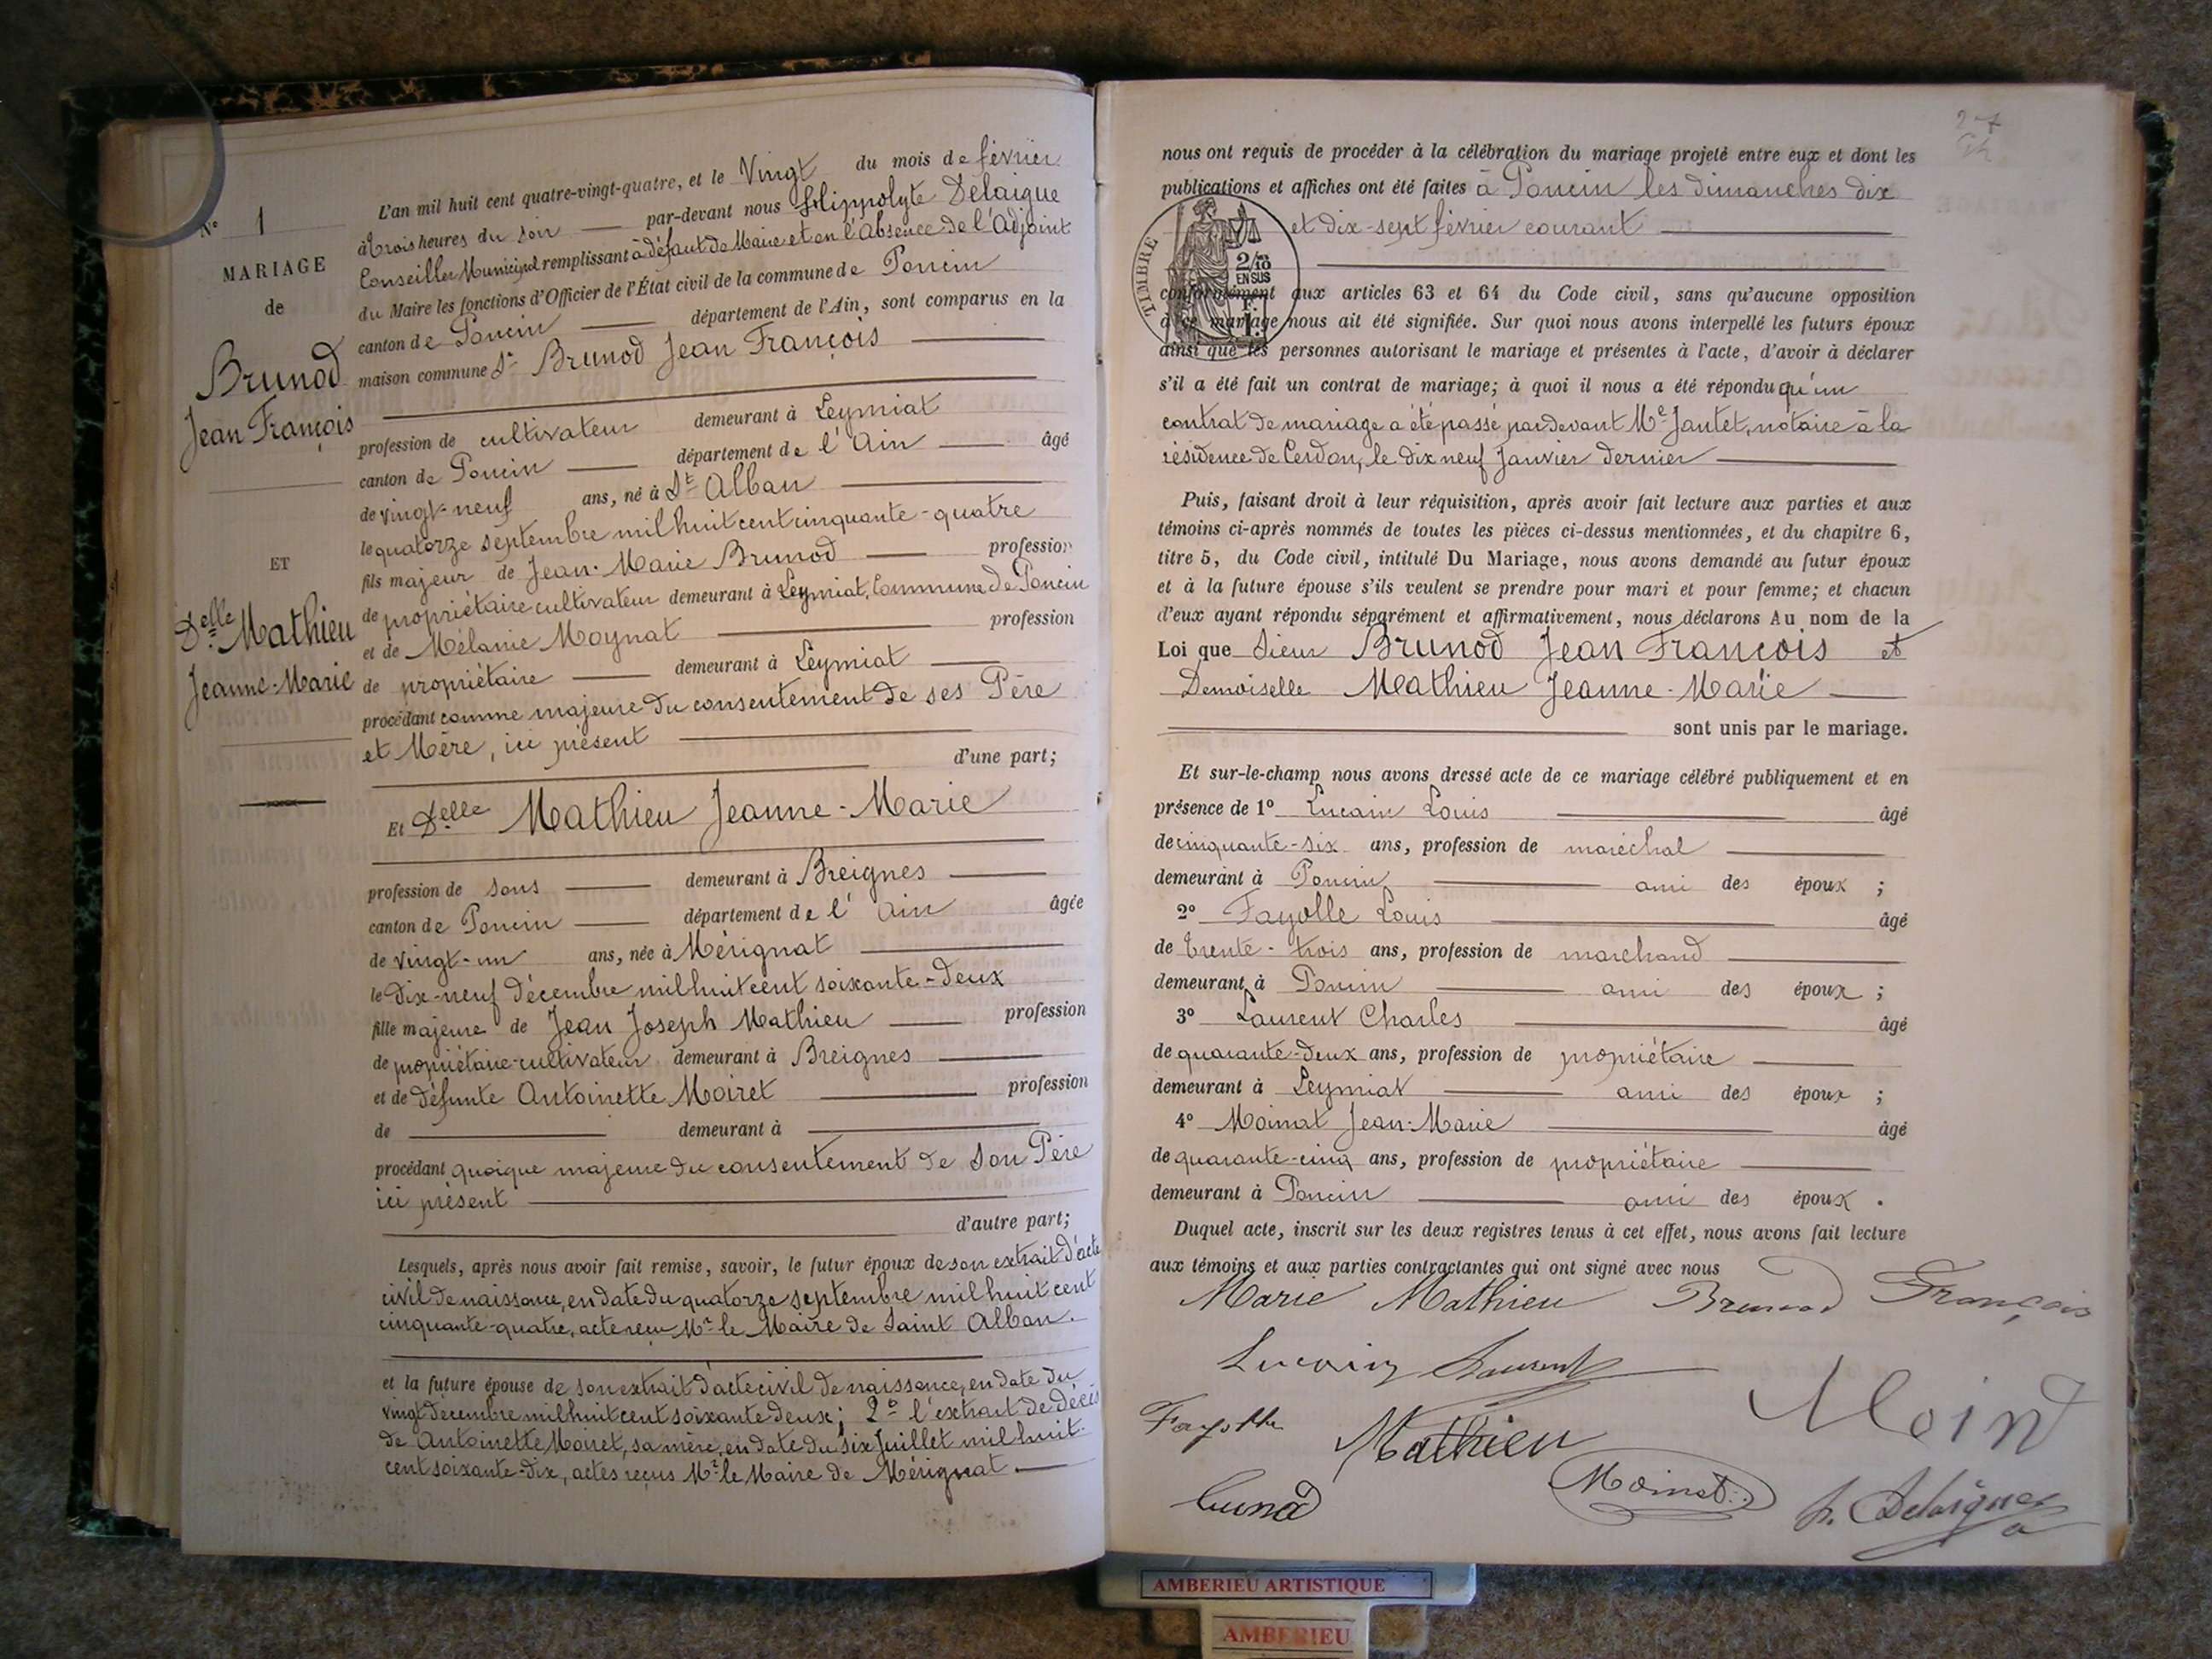 N° 1
MARIAGE
de
Brunod
Jean François
ET
Delle Mathieu
Jeanne-Marie
L'an mil huit cent quatre-vingt-quatre, et le Vingt du mois de février
à trois heures du soir par-devant nous Hippolyte Delaigue
Conseiller Municipal remplissant à défaut de Maire et en l'absence de l'Adjoint
du Maire les fonctions d'Officier de l'État civil de la commune de Poncin
canton de Poncin département de l'Ain, sont comparus en la
maison commune Sr Brunod Jean François
profession de cultivateur demeurant à Leymiat
canton de Poncin département de l'Ain âgé
de vingt-neuf ans, né à St Alban
le quatorze septembre mil huit cent cinquante-quatre
fils majeur de Jean-Marie Brunod profession
de propriétaire cultivateur demeurant à Leymiat, Commune de Poncin
et de Mélanie Moynat profession
de propriétaire demeurant à Leymiat
procédant comme majeure du consentement de ses Père
et Mère, ici présent
d'une part;
Et Delle Mathieu Jeanne-Marie
profession de sans demeurant à Breignes
canton de Poncin département de l'Ain âgée
de vingt-un ans, née à Mérignat
le dix-neuf décembre mil huit cent soixante-deux
fille majeure de Jean Joseph Mathieu profession
de propriétaire-cultivateur demeurant à Breignes
et de défunte Antoinette Moiret profession
de demeurant à
procédant quoique majeure du consentement de son Père
ici présent
d'autre part;
Lesquels, après nous avoir fait remise, savoir, le futur époux de son extrait d'acte
civil de naissance, en date du quatorze septembre mil huit cent
cinquante-quatre, acte reçu Mr le Maire de Saint Alban.
et la future épouse de son extrait d'acte civil de naissance, en date du
vingt décembre mil huit cent soixante deux; 2° l'extrait de décès
de Antoinette Moiret, sa mère, en date du six Juillet mil huit
cent soixante-dix, actes reçus Mr le Maire de Mérignat
27
nous ont requis de procéder à la célébration du mariage projeté entre eux et dont les
publications et affiches ont été faites à Poncin les dimanches dix
et dix-sept février courant
TIMBRE
2/10
EN SUS
conformément aux articles 63 et 64 du Code civil, sans qu'aucune opposition
à ce mariage nous ait été signifiée. Sur quoi nous avons interpellé les futurs époux
ainsi que les personnes autorisant le mariage et présentes à l'acte, d'avoir à déclarer
s'il a été fait un contrat de mariage; à quoi il nous a été répondu qu'un
contrat de mariage a été passé par devant Me Jantet, notaire à la
résidence de Cerdon, le dix neuf Janvier dernier
Puis, faisant droit à leur réquisition, après avoir fait lecture aux parties et aux
témoins ci-après nommés de toutes les pièces ci-dessus mentionnées, et du chapitre 6,
titre 5, du Code civil, intitulé Du Mariage, nous avons demandé au futur époux
et à la future épouse s'ils veulent se prendre pour mari et pour femme; et chacun
d'eux ayant répondu séparément et affirmativement, nous déclarons Au nom de la
Loi que Sieur Brunod Jean François et
Demoiselle Mathieu Jeanne-Marie
sont unis par le mariage.
Et sur-le-champ nous avons dressé acte de ce mariage célébré publiquement et en
présence de 1° Lucain Louis âgé
de cinquante-six ans, profession de maréchal
demeurant à Poncin ami des époux ;
2° Fayolle Louis âgé
de trente-trois ans, profession de marchand
demeurant à Poncin ami des époux ;
3° Laurent Charles âgé
de quarante-deux ans, profession de propriétaire
demeurant à Leymiat ami des époux ;
4° Moinat Jean-Marie âgé
de quarante-cinq ans, profession de propriétaire
demeurant à Poncin ami des époux .
Duquel acte, inscrit sur les deux registres tenus à cet effet, nous avons fait lecture
aux témoins et aux parties contractantes qui ont signé avec nous
Marie Mathieu Brunod François
Lucain Laurent
Fayolle Mathieu
Moinat
h. Delaigue
AMBERIEU ARTISTIQUE
AMBERIEU